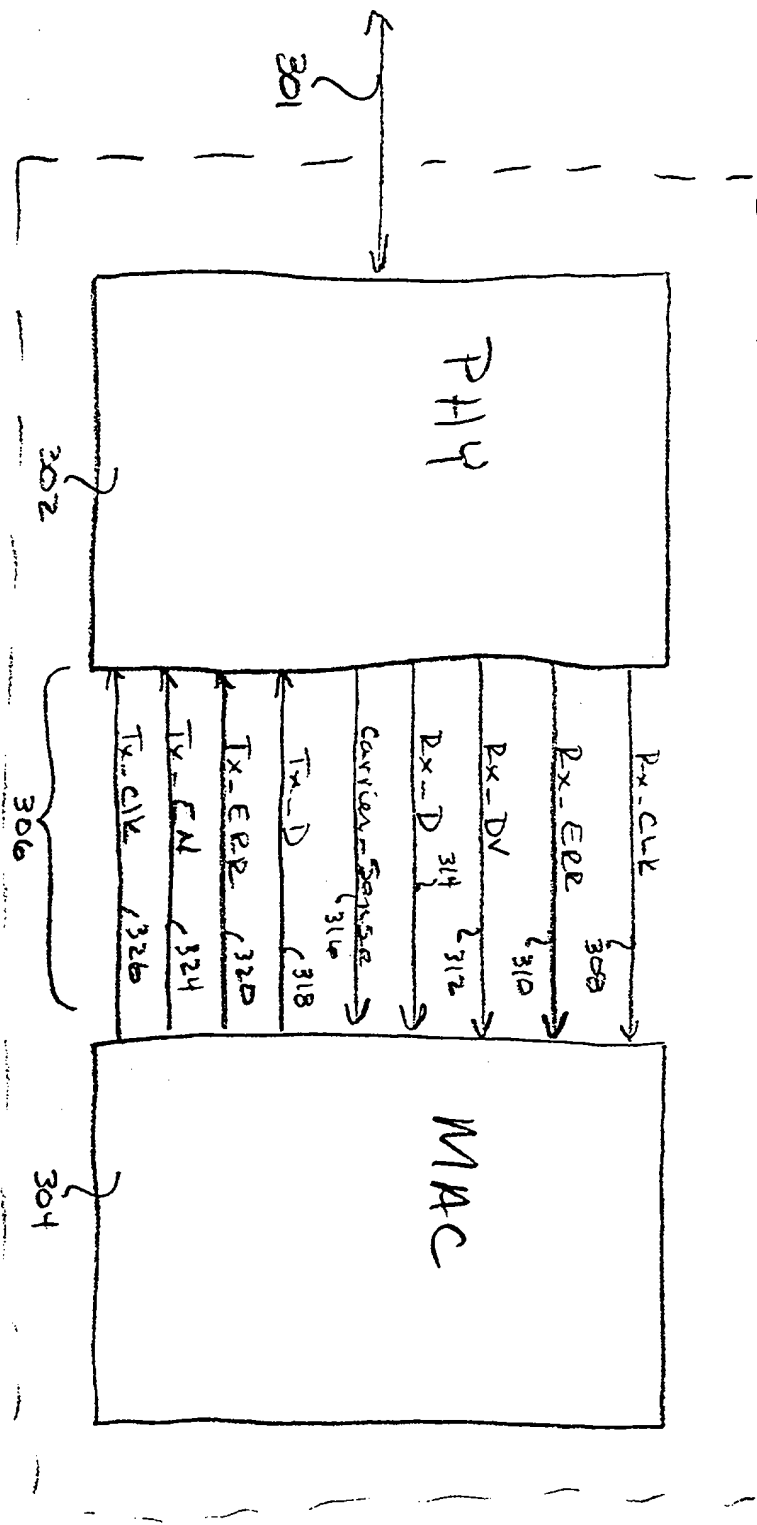 301
PHY
302
Rx_CLK
308
Rx_ERR
310
Rx_DV
312
Rx_D
314
Carrier_Sense
316
Tx_D
318
Tx_ERR
320
Tx_EN
324
Tx_Clk
326
306
MAC
304